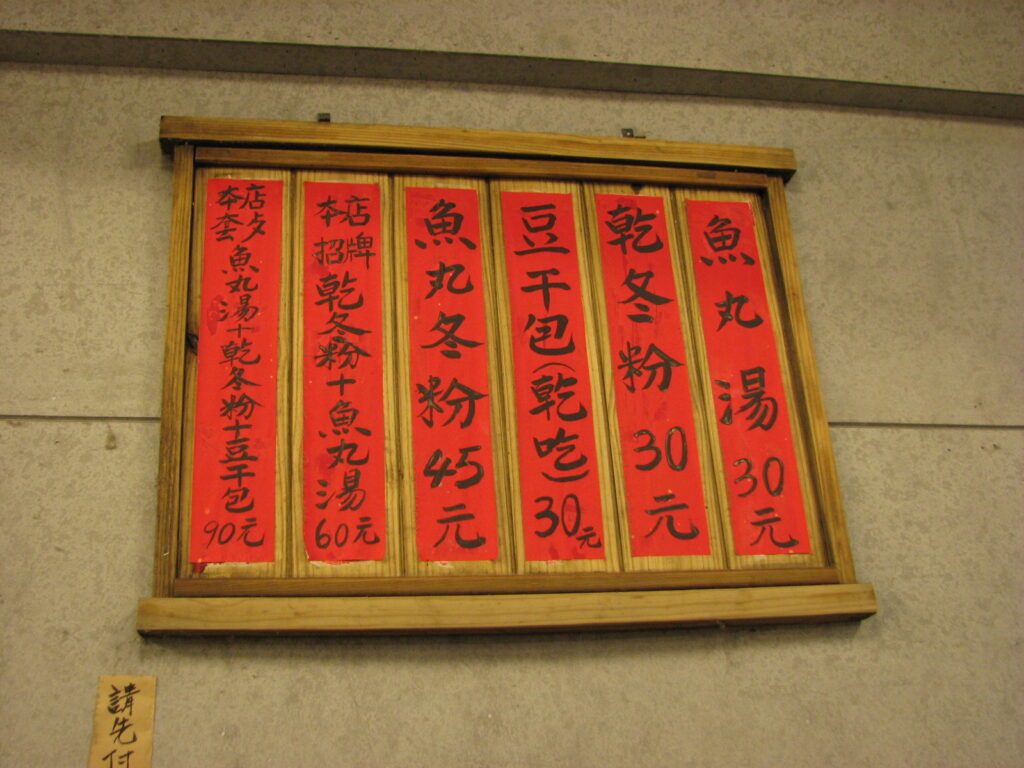 魚丸湯30元
乾冬粉30元
豆干包(乾吃)30元
魚丸冬粉45元
本店招牌乾冬粉+魚丸湯60元
本店套歺魚丸湯+乾冬粉+豆干包90元
請先付